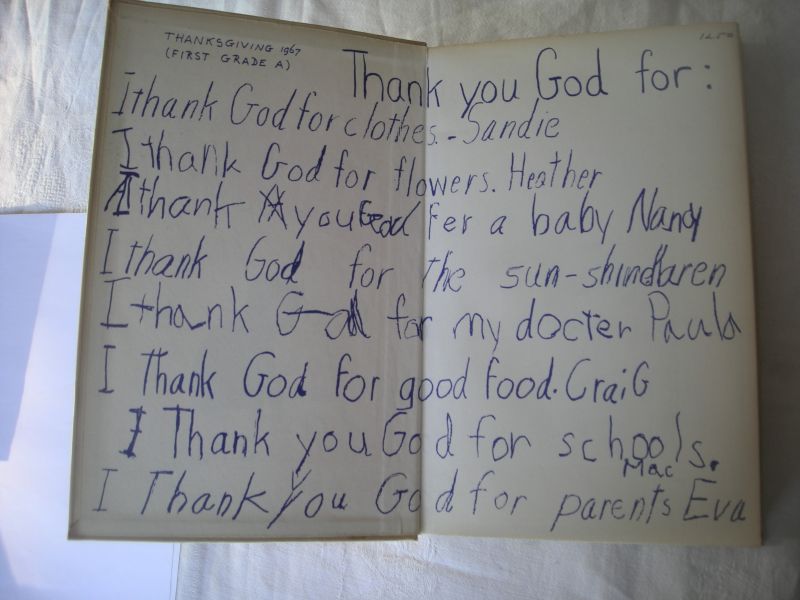 THANKSGIVING 1967
(FIRST GRADE A)
12.50
Thank you God for:
I thank God for clothes. - Sandie
I thank God for flowers. Heather
I thank you God fer a baby Nancy
I thank God for the sun-shine Karen
I thank God for my docter Paula
I Thank God for good food. CraiG
I Thank you God for schools.
Mac
I Thank you God for parents Eva